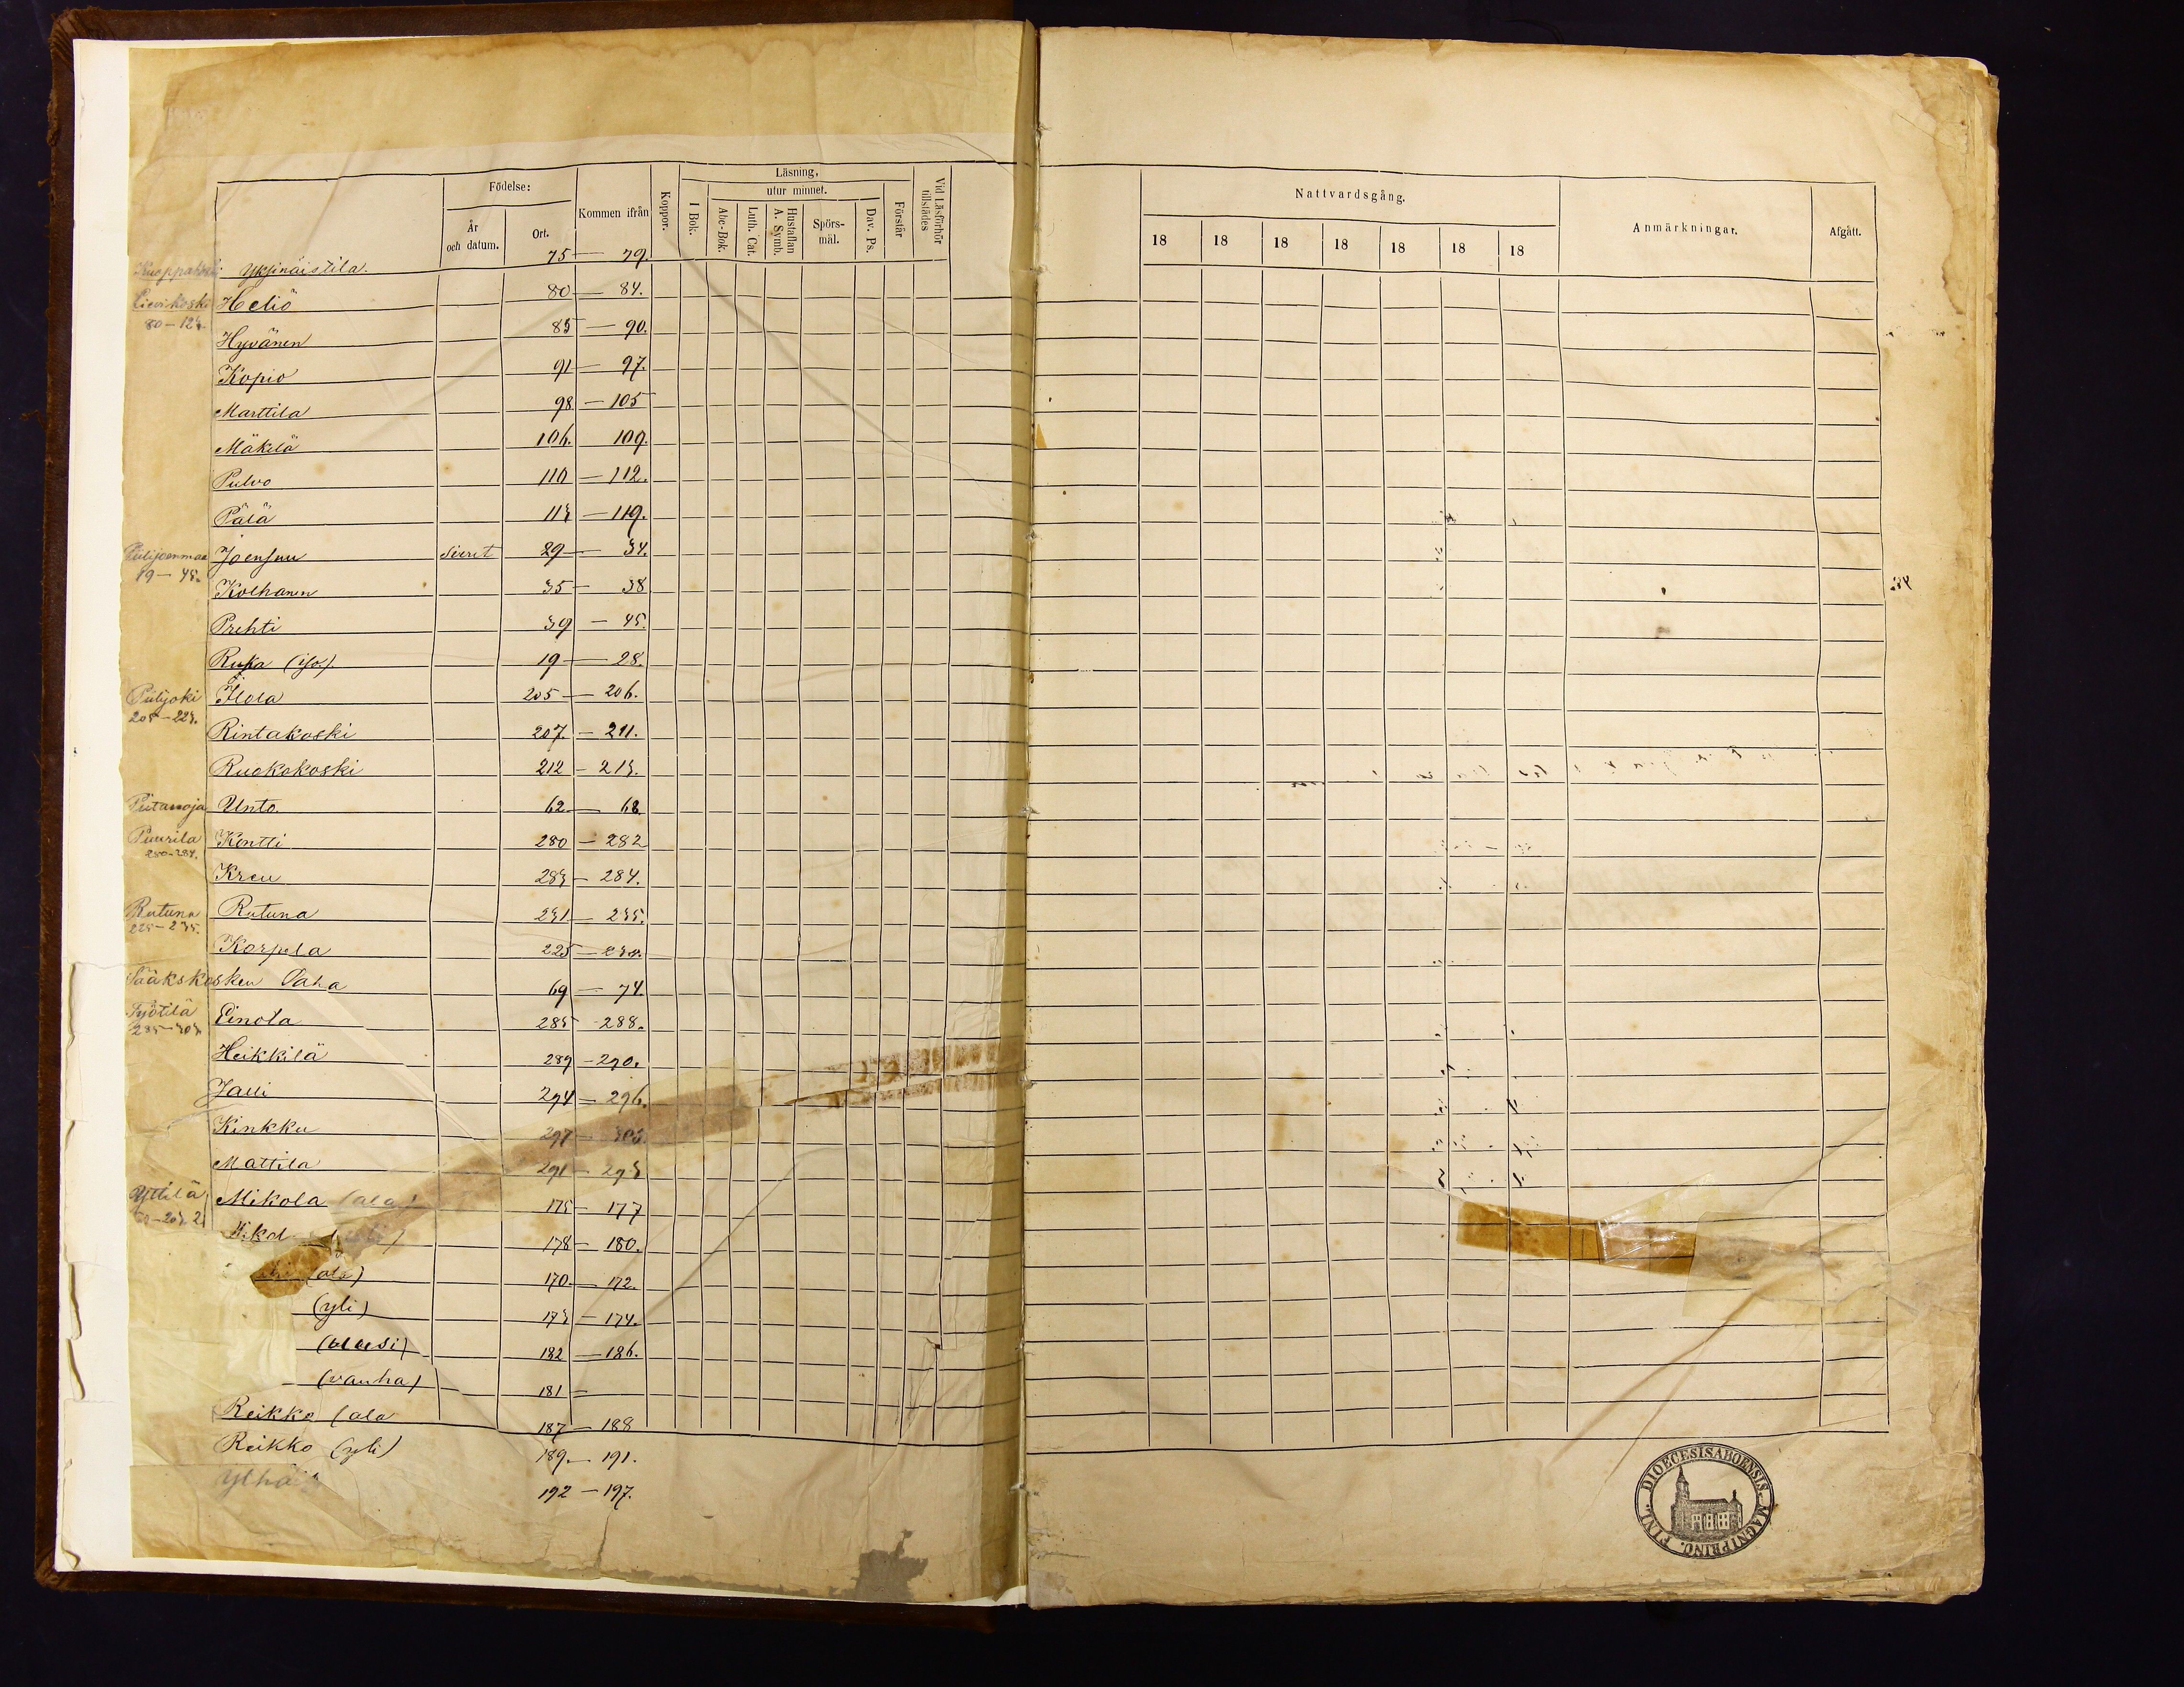 Födelse:
År och datum.
Ort.
Kommen ifrån
Koppor.
Läsning,
utur minnet.
I Bok.
Abc-Bok.
Luth. Cat.
Hustaflan A. Symb.
Spörs-mål.
Dav. Ps.
Förstår
Vid Läsförhör tillstädes
Nattvardsgång.
18 18 18 18 18 18 18
Anmärkningar.
Afgått.
Yksinäistila. 75 — 79.
Lievikoski Heliö 80 — 84.
Hyvänen 85 — 90.
Kopio 91 — 97.
Marttila 98 — 105
Mäkelä 106. 109.
Pulvo 110 — 112.
Pälä 113 — 119.
Piilijoenmaa Joensuu 29 — 34.
19 — 45.
Kolhanen 35 — 38
Prehti 39 — 45.
Ruka (iso) 19 — 28.
Piilijoki Ilola 205 — 206.
205 — 223.
Rintakoski 207. — 211.
Ruokokoski 212 — 213.
Unto. 62 — 68
Puurila Kontti 280 — 282
280 - 284.
Kreu 283 — 284.
Rutuna Rutuna 231 — 235.
225 — 235.
Korpela 225 — 230.
Sääkskosken Vaha 69 — 74.
Työtilä Einola 285 - 288.
Heikkilä 289 — 290.
Jalli 294 — 296.
Kinkku 297
Mattila 291 — 293
Yttilä Mikola (ala) 175 — 177
178 — 180.
(ala) 170. — 172.
(yli) 173 — 174.
(uusi) 182 — 186.
(vanha) 181 —
Reikko (ala 187 — 188
Reikko (yli) 189. — 191.
192 — 197.
DIOECESIS ABOENSIS. MAGNI PRINC. FINL.